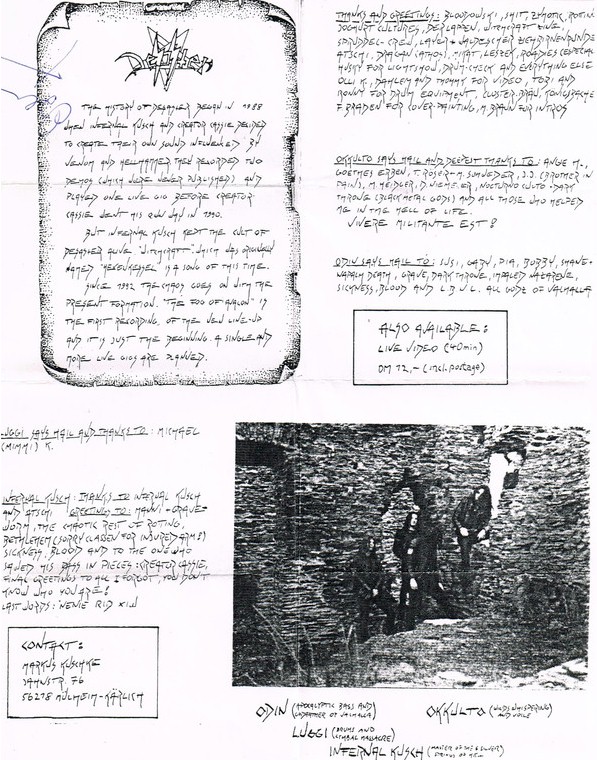 Desaster
THE HISTORY OF DESASTER BEGAN IN 1988
WHEN INFERNAL KUSCH AND CREATOR CASSIE DECIDED
TO CREATE THEIR OWN SOUND INFLUENCED BY
VENOM AND HELLHAMMER. THEY RECORDED TWO
DEMOS (WHICH WERE NEVER PUBLISHED) AND
PLAYED ONE LIVE GIG BEFORE CREATOR
CASSIE WENT HIS OWN WAY IN 1990.
BUT INFERNAL KUSCH KEPT THE CULT OF
DESASTER ALIVE. "WITCHCRAFT", WHICH WAS ORIGINALLY
NAMED "HEXENKESSEL" IS A SONG OF THIS TIME.
SINCE 1992 THE CHAOS GOES ON WITH THE
PRESENT FORMATION. "THE FOG OF AVALON" IS
THE FIRST RECORDING OF THE NEW LINE-UP
AND IT IS JUST THE BEGINNING. A SINGLE AND
MORE LIVE GIGS ARE PLANNED.
THANKS AND GREETINGS: BLOODOWSKI, SHIT, ROTING
JOGHURT CULTURES, DER LAPPEN, WITCHCRAFT ZINE
SPRUDDEL-CREW, LAYER +
ATSCHI, DRACAN (ATHOS), MIKAT LESZEK, ROADIES (ESPECIAL
HUSKY FOR LIGHTSHOW, DRUMCHECK AND EVERYTHING ELSE
OLLI K., DAHLEM AND THOMMY FOR VIDEO, TOBI AND
RONNY FOR DRUM EQUIPMENT, CLUSTER, BRAN,
F. BRADEN FOR COVER-PAINTING, M. BRAUN FOR INTROS
OKKULTO SAYS HAIL AND DEEPEST THANKS TO: ANGE M.,
GOETHES ERBEN, T. RÖSER, M. SCHWEDER, J.J. (BROTHER IN
PAIN), M. HEIDLER, D. NIEMEIER, NOCTURNO CULTO - DARK
THRONE (BLACK METAL GODS) AND ALL THOSE WHO HELPED
ME IN THE HELL OF LIFE.
VIVERE MILITANTE EST!
ODIN SAYS HAIL TO: SUSI, GABY, PIA, BOBBY, SHANE -
NAPALM DEATH, GRAVE, DARKTHRONE, IMPALED NAZARENE,
SICKNESS, BLOOD AND ALL GODZ OF VALHALLA
ALSO AVAILABLE:
LIVE VIDEO (40min)
DM 12,- (incl. postage)
LUGGI SAYS HAIL AND THANKS TO: MICHAEL
(MIMMI) K.
INFERNAL KUSCH: THANKS TO INFERNAL KUSCH
AND ATSCHI GREETING TO: MANNI - GRAVE-
WORM, THE CHAOTIC REST OF ROTING,
BETHLEHEM (SORRY CLASSEN FOR INJURED ARMS)
SICKNESS, BLOOD AND TO THE ONE WHO
SAWED HIS BASS IN PIECES: CREATOR CASSIE,
FINAL GREETINGS TO ALL I FORGOT, YOU DON'T
KNOW WHO YOU ARE!
LAST WORDS:
CONTACT:
MARKUS KUSCHKE
JAHNSTR. 76
56218 MÜLHEIM-KÄRLICH
ODIN (APOCALYPTIC BASS AND
GODFATHER OF VALHALLA)
OKKULTO (WORDS WHISPERING
AND VOICE)
LUGGI (DRUMS AND
CYMBAL MASSACRE)
INFERNAL KUSCH (MASTER OF THE 6 SILVER
STRINGS OF HELL)